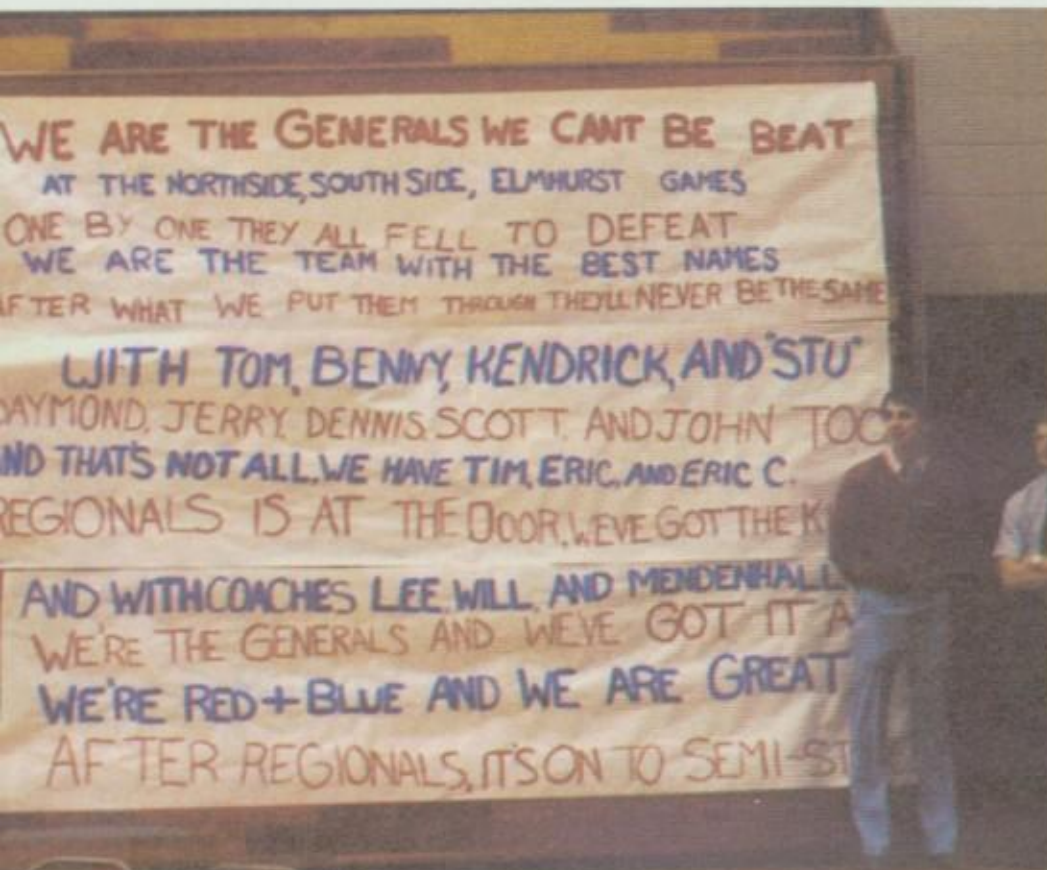 WE ARE THE GENERALS WE CANT BE BEAT
AT THE NORTHSIDE, SOUTH SIDE, ELMHURST GAMES
ONE BY ONE THEY ALL FELL TO DEFEAT
WE ARE THE TEAM WITH THE BEST NAMES
AFTER WHAT WE PUT THEM THROUGH THEYLL NEVER BE THE SAME
WITH TOM, BENNY, KENDRICK, AND "STU"
DAYMOND, JERRY, DENNIS, SCOTT AND JOHN TOO
AND THAT'S NOT ALL. WE HAVE TIM, ERIC, AND ERIC C.
REGIONALS IS AT THE DOOR, WEVE GOT THE
AND WITH COACHES LEE, WILL, AND MENDENHALL
WE'RE THE GENERALS AND WEVE GOT IT
WE'RE RED + BLUE AND WE ARE GREAT
AFTER REGIONALS, ITS ON TO SEMI-ST